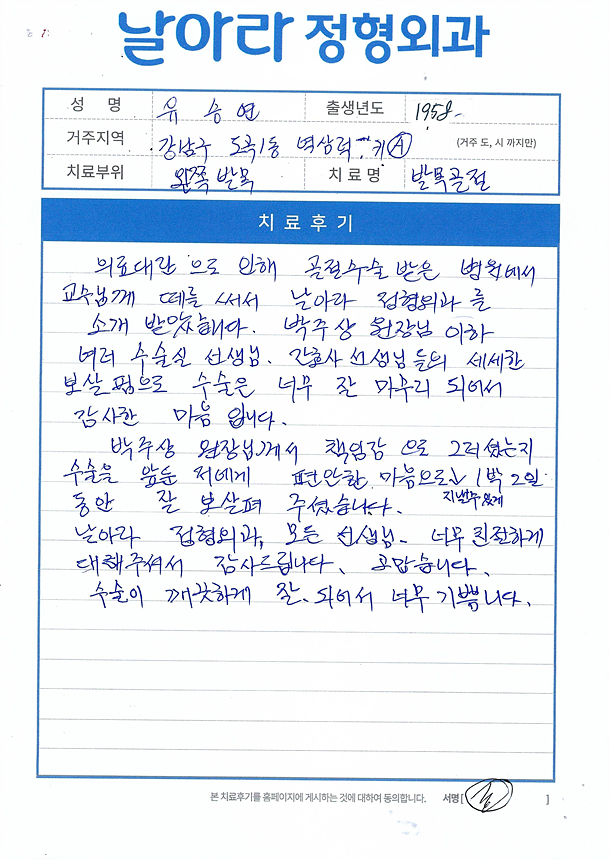 날아라 정형외과
성 명 유 승 연 출생년도 1958
거주지역 강남구 도곡1동 (거주 도, 시 까지만)
치료부위 왼쪽 발목 치 료 명 발목골절
치 료 후 기
의료대란 으로 인해 골절수술 받은 병원에서
교수님께 떼를 써서 날아라 정형외과 를
소개 받았습니다. 박주상 원장님 이하
여러 수술실 선생님. 간호사 선생님 들의 세세한
보살핌으로 수술은 너무 잘 마무리 되어서
감사한 마음 입니다.
박주상 원장님께서 책임감 으로 그러셨는지
수술을 앞둔 저에게 편안한 마음으로 1박 2일
동안 잘 보살펴 주셨습니다. 지낼수 있게
날아라 정형외과, 모든 선생님. 너무 친절하게
대해주셔서 감사드립니다. 고맙습니다.
수술이 깨끗하게 잘. 되어서 너무 기쁩니다.
본 치료후기를 홈페이지에 게시하는 것에 대하여 동의합니다. 서명 [ ]